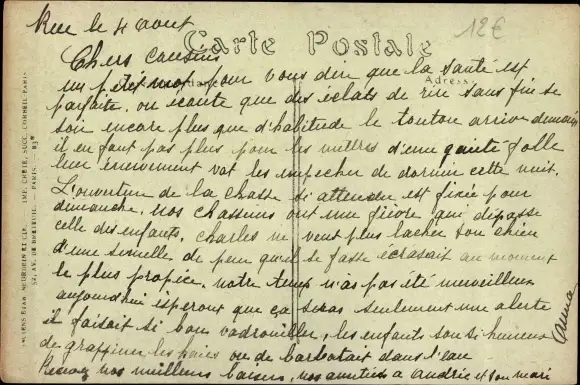 Rue le 4 aout
12€
Carte Postale
Adresse
Chers cousins
un petit mot pour vous dire que la santé est
parfaite, on écoute que des éclats de rire sans fin se
soir encore plus que d'habitude le tonton arrive demain
il en faut pas plus pour les mettres d'une gaité folle
leur énervement vat les empecher de dormir cette nuit.
L'ouverture de la chasse si attendue est fixée pour
dimanche, nos chasseurs ont une fièvre qui dépasse
celle des enfants, Charles ne veut plus lacher son chien
d'une semelle de peur qu'il se fasse écrasait au moment
le plus propice, notre temp n'as pas été merveilleux
aujourdhui esperont que ça seras seulement une alerte
il faisait si bon vadrouiller, les enfants son si heureux
de grappiner les haies ou de barbotait dans l'eau
Recevez nos meilleurs baisers, nos amitiés a Andrée et son mari
Anna
LEVY ET NEURDEIN ET CIE. IMP. CRÉTÉ, SUCC. CORBEIL-PARIS
52, AV. DE BRETEUIL. — PARIS